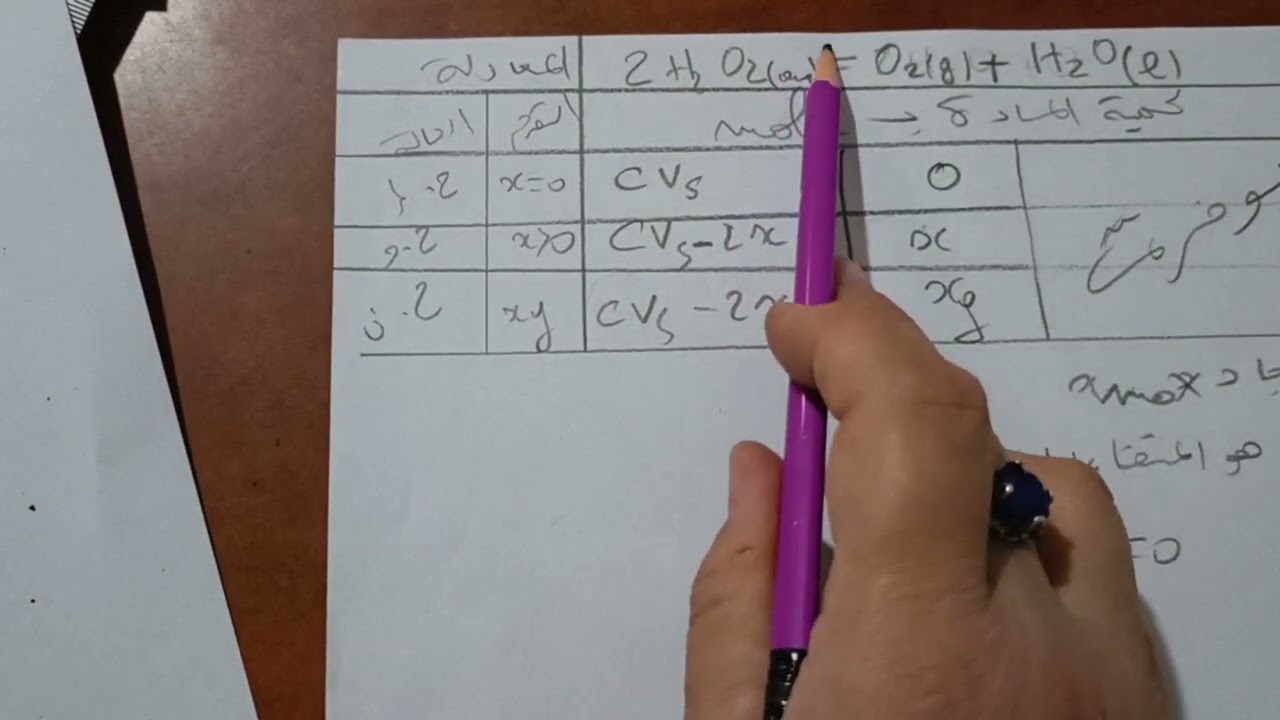 المعادلة 2 H2 O2(aq) = O2(g) + H2O(l)
الحالة التقدم كمية المادة بـ mol
ح.إ x=0 CVs 0
ح.و x>0 CVs - 2x x بوفرة
ح.ن xf CVs - 2x xf
xmax
هو المتفا
=0